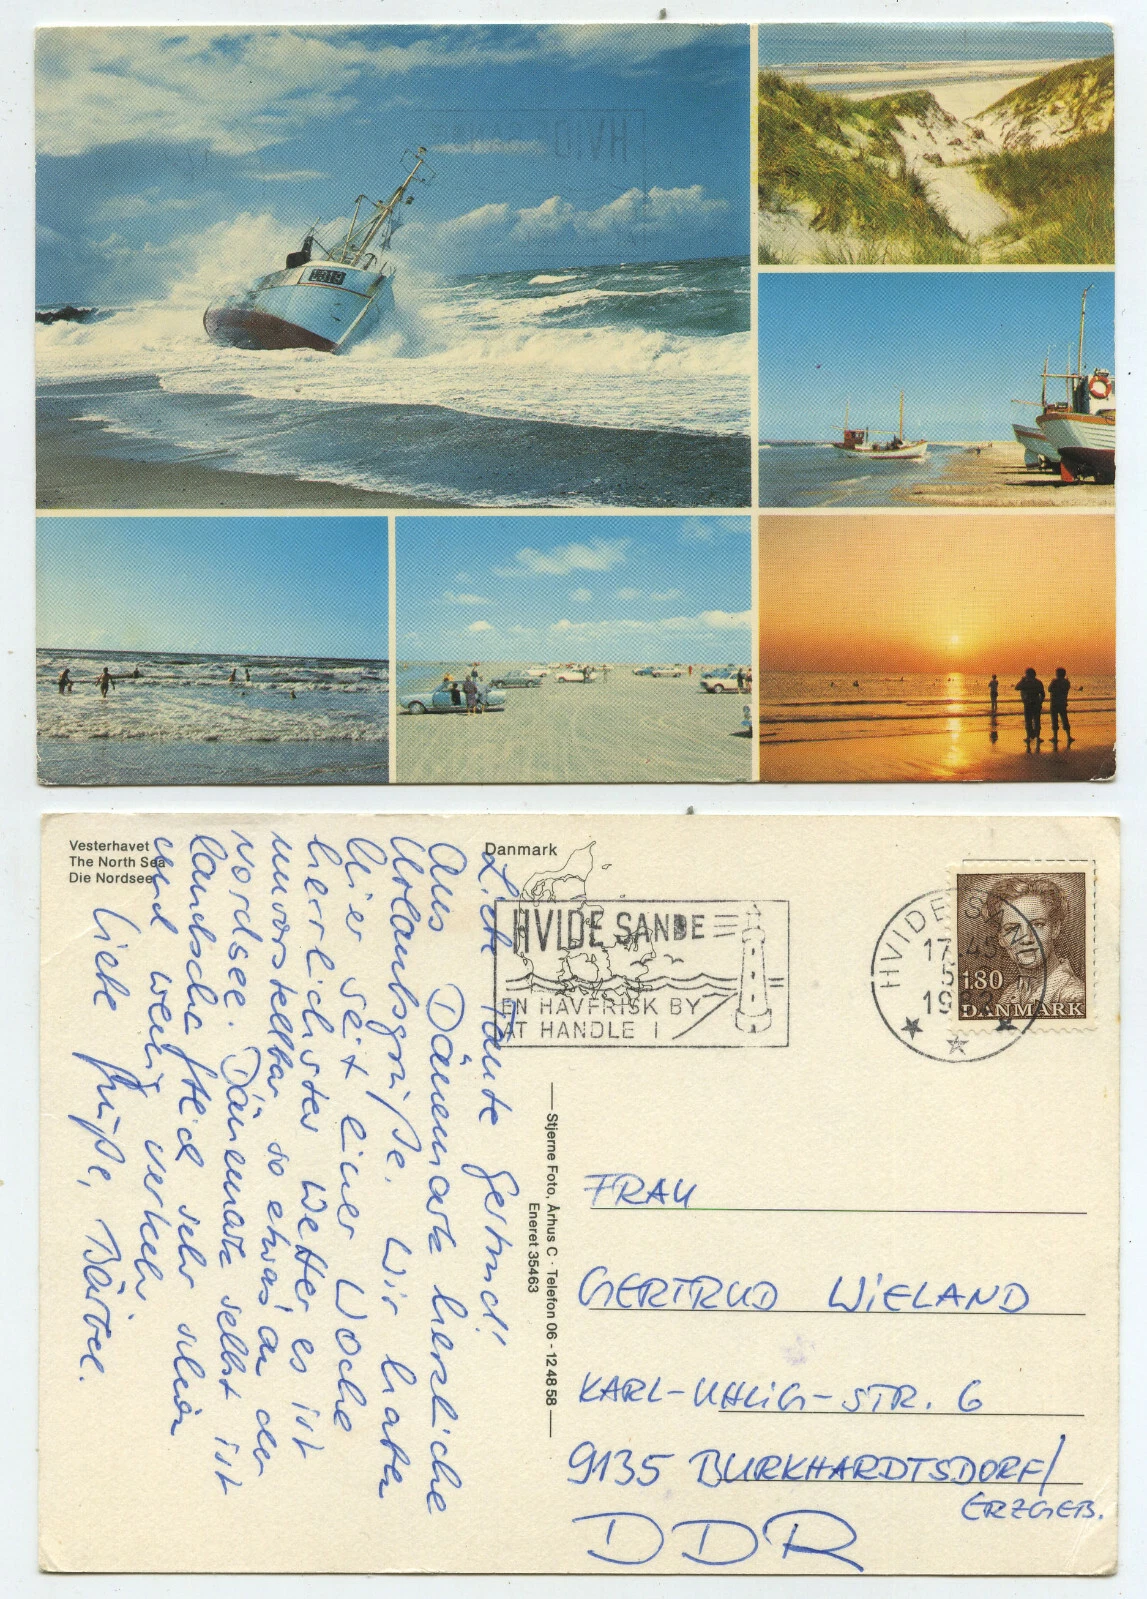 Vesterhavet
The North Sea
Die Nordsee
Danmark
HVIDE SANDE
EN HAVFRISK BY
AT HANDLE I
HVIDE SANDE
17-45
5
19
1.80
DANMARK
Liebe Tante Gertrud!
Aus Dänemark herzliche
Urlaubsgrüße. Wir haben
hier seit einer Woche
herrlichstes Wetter es ist
unvorstellbar so etwas an der
Nordsee. Dänemark selbst ist
landschaftlich sehr schön
und wenig verkehr.
Liebe Grüße, Bärbel.
Stjerne Foto, Århus C · Telefon 06 - 12 48 58
Eneret 35463
FRAU
GERTRUD WIELAND
KARL-UHLIG-STR. 6
9135 BURKHARDTSDORF/
ERZGEB.
DDR